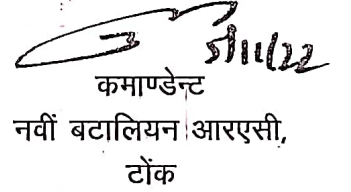 5/11/22
कमाण्डेन्ट
नवीं बटालियन आरएसी,
टोंक